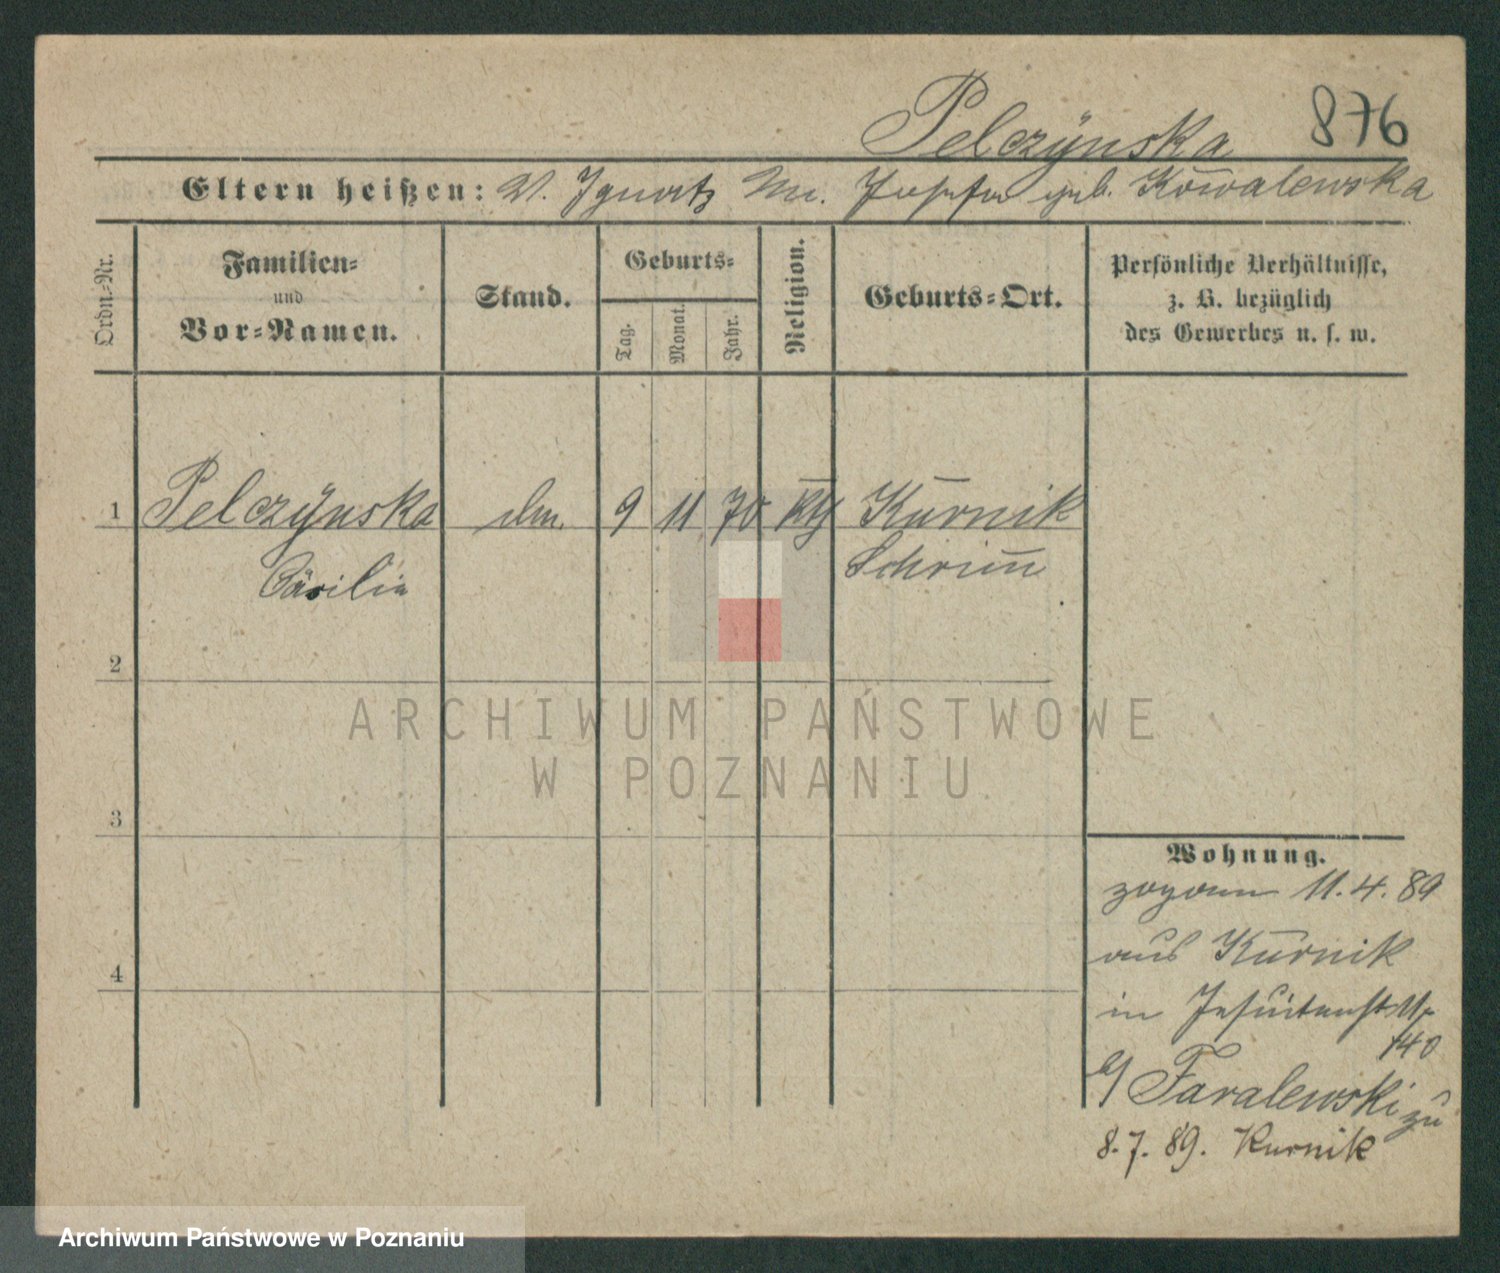 Pelczÿnska 876
Eltern heißen: V. Ignatz Mu. Josefa geb. Kowalewska
Ordn.-Nr.
Familien-
und
Vor-Namen.
Stand.
Geburts-
Tag.
Monat.
Jahr.
Religion.
Geburts-Ort.
Persönliche Verhältnisse,
z. B. bezüglich
des Gewerbes u. s. w.
1 Pelczÿnska 9 11 70 Kurnik
Cäcilia Schrimm
2
3
4
Wohnung.
zogann 11.4.89
aus Kurnik
in Jesuitenst 11
140
b/ Faralewski zu
8.7.89. Kurnik
ARCHIWUM PAŃSTWOWE
W POZNANIU
Archiwum Państwowe w Poznaniu